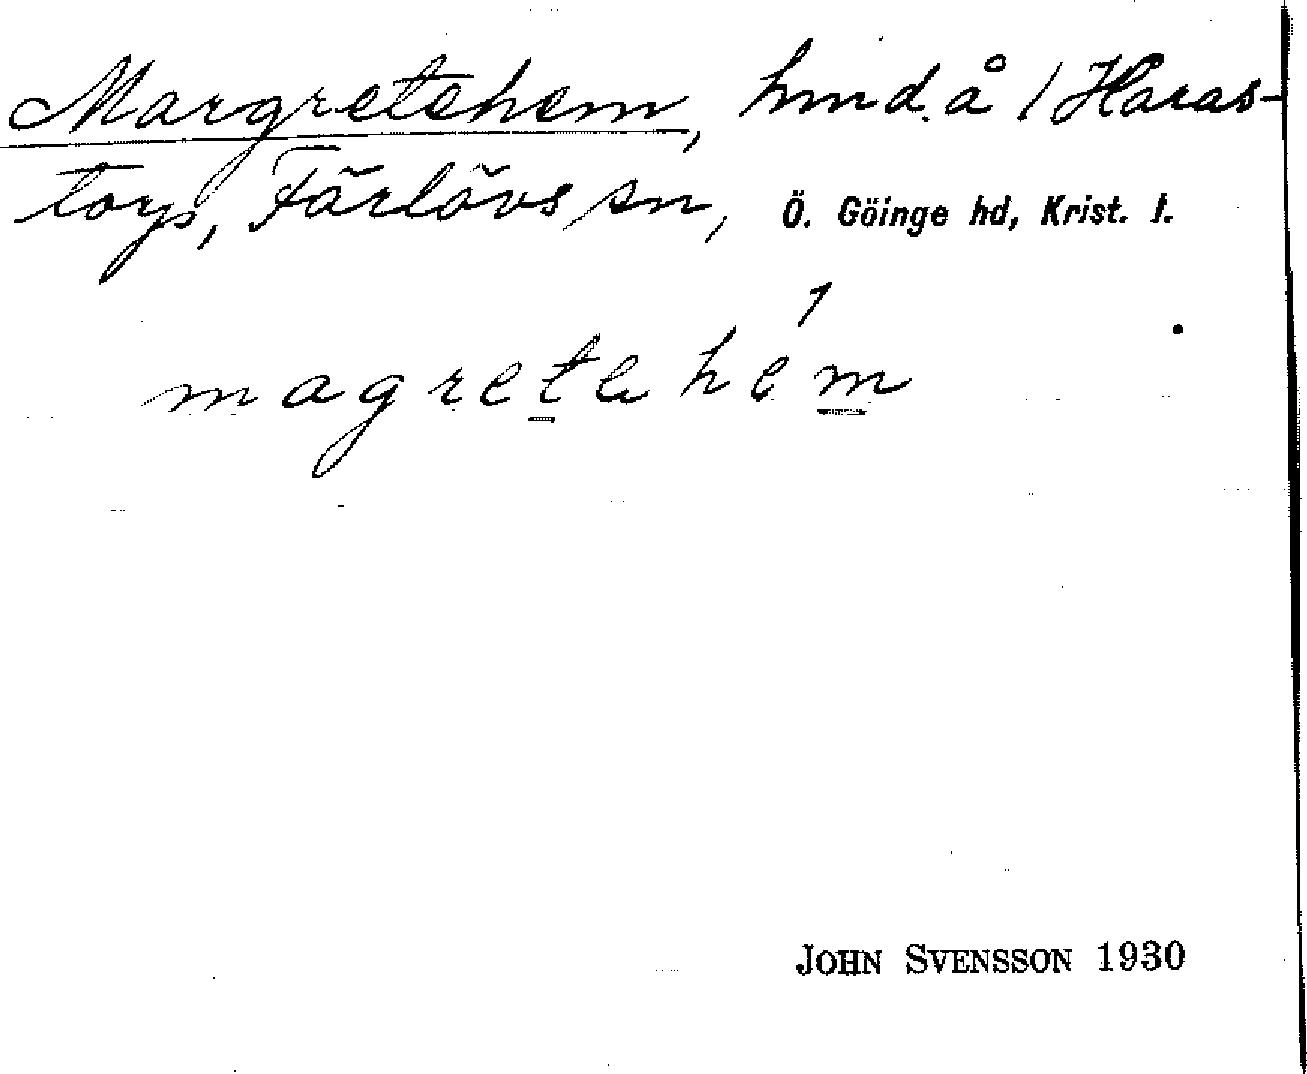 Margretehem, hmd. å 1 Haras-
torp, Färlövs sn, Ö. Göinge hd, Krist. l.
magretehém
JOHN SVENSSON 1930